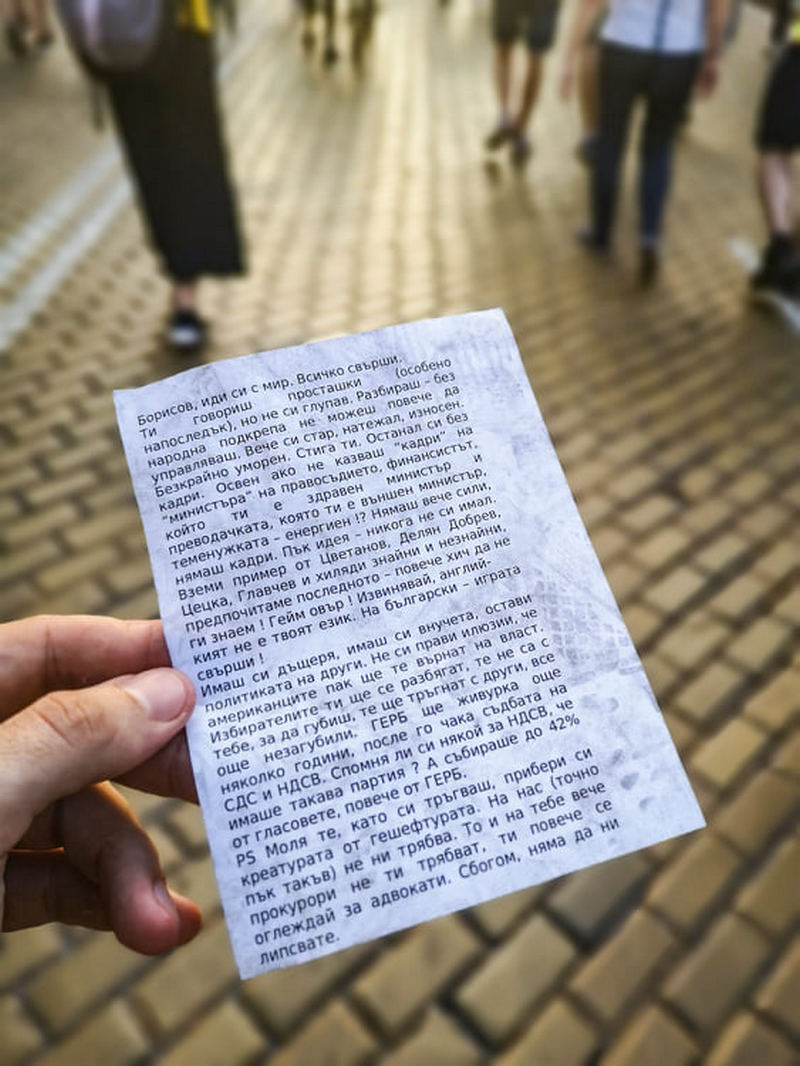 Борисов, иди си с мир. Всичко свърши.
Ти говориш просташки (особено
напоследък), но не си глупав. Разбираш – без
народна подкрепа не можеш повече да
управляваш. Вече си стар, натежал, износен.
Безкрайно уморен. Стига ти. Останал си без
кадри. Освен ако не казваш "кадри" на
"министъра" на правосъдието, финансистът,
който ти е здравен министър и
преводачката, която ти е външен министър,
теменужката – енергиен !? Нямаш вече сили,
нямаш кадри. Пък идея – никога не си имал.
Вземи пример от Цветанов, Делян Добрев,
Цецка, Главчев и хиляди знайни и незнайни,
предпочитаме последното – повече хич да не
ги знаем ! Гейм овър ! Извинявай, англий-
кият не е твоят език. На български – играта
свърши !
Имаш си дъщеря, имаш си внучета, остави
политиката на други. Не си прави илюзии, че
американците пак ще те върнат на власт.
Избирателите ти ще се разбягат, те не са с
тебе, за да губиш, те ще тръгнат с други, все
още незагубили. ГЕРБ ще живурка още
няколко години, после го чака съдбата на
СДС и НДСВ. Спомня ли си някой за НДСВ, че
имаше такава партия ? А събираше до 42%
от гласовете, повече от ГЕРБ.
PS Моля те, като си тръгваш, прибери си
креатурата от гешефтурата. На нас (точно
пък такъв) не ни трябва. То и на тебе вече
прокурори не ти трябват, ти повече се
оглеждай за адвокати. Сбогом, няма да ни
липсвате.